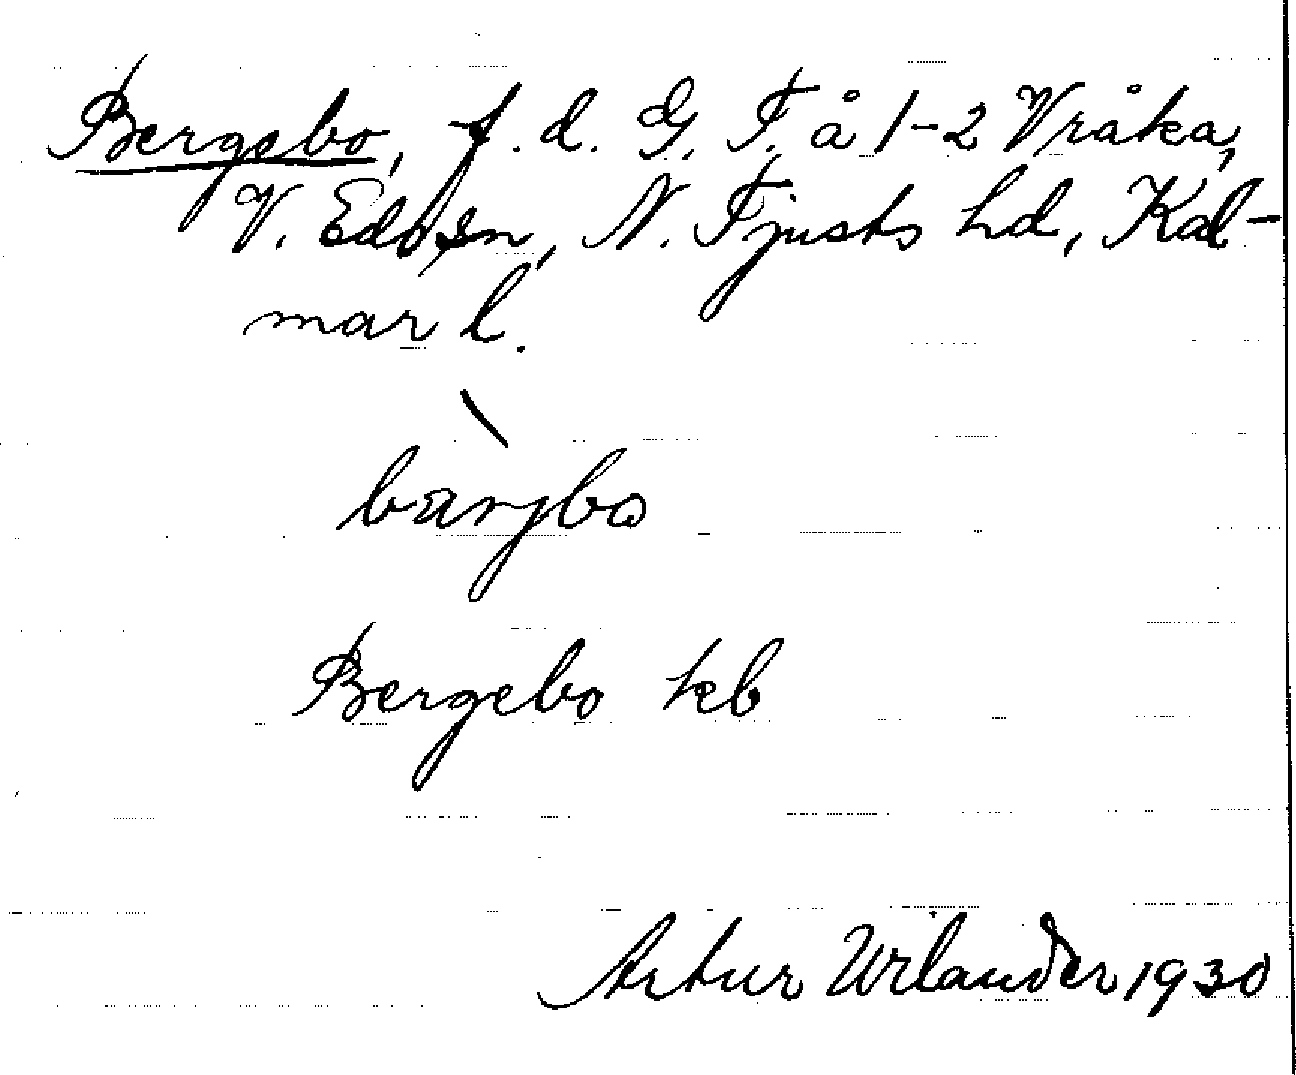 Bergebo, f. d. G. T. å 1-2 Vråka,
V. Eds sn, N. Tjusts hd, Kal-
mar l.
bärjbo
Bergebo kb
Artur Urlander 1930